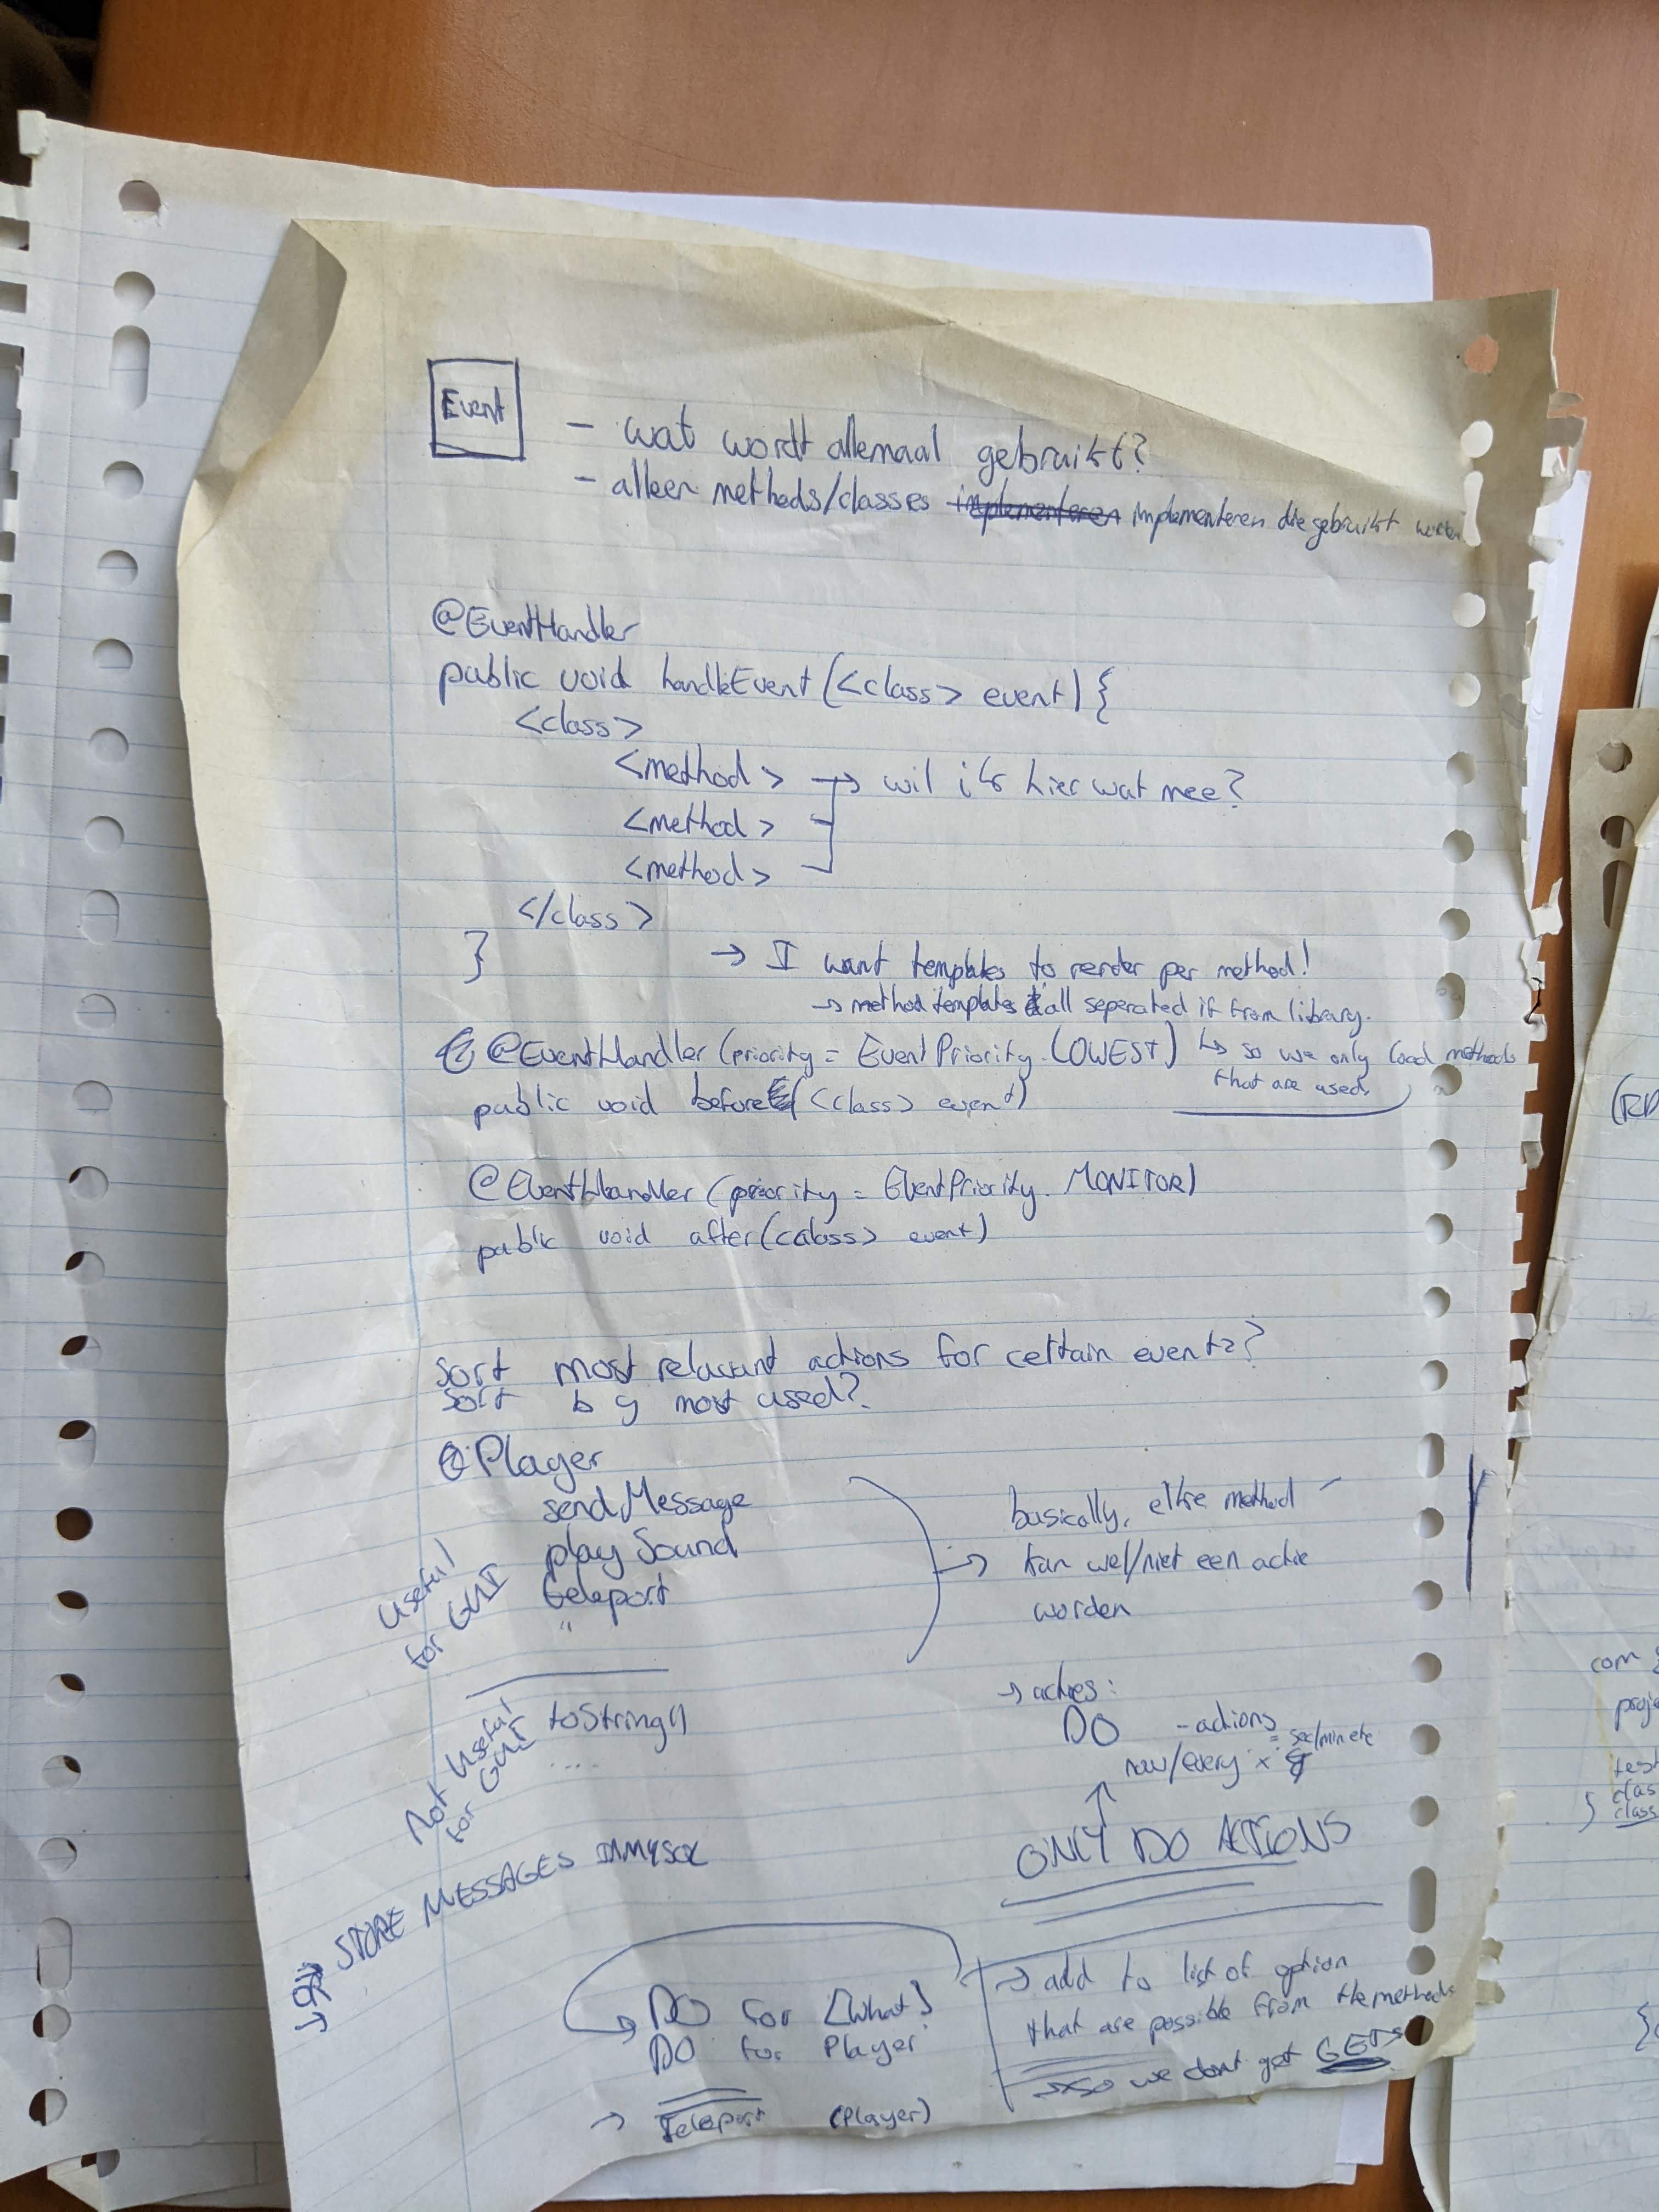 Event
- wat wordt allemaal gebruikt?
- alleen methods/classes implementeren implementeren die gebruikt worden
@EventHandler
public void handleEvent(<class> event) {
<class>
<method> → wil ik hier wat mee?
<method>
<method>
</class>
}
→ I want templates to render per method!
→ method templates all seperated it from library.
@EventHandler (priority = EventPriority.LOWEST) ↳ so we only load methods
that are used.
public void before(<class> event)
@EventHandler (priority = EventPriority.MONITOR)
public void after(<class> event)
Sort most relavant actions for certain events?
Sort by most used?
Player
sendMessage
playSound
teleport
"
useful
for GUI
basically, elke method
kan wel/niet een actie
worden
toString()
....
Not useful
for GUI
→ acties:
DO - actions
= sec/min etc
now/every x
ONLY DO ACTIONS
STORE MESSAGES IN MYSQL
DO for [What]
DO for Player
→ Teleport (Player)
→ add to list of option
that are possible from the methods
→ so we dont get GETs
(RD
com
proje
test
clas
} class
{